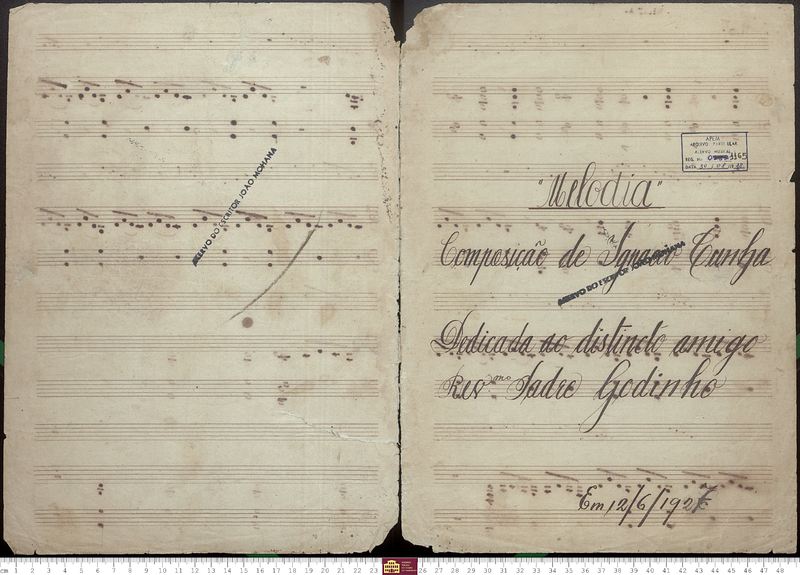 ACERVO DO ESCRITOR JOÃO MOHANA
APEM
ARQUIVO PARTICULAR
ACERVO MUSICAL
REG. Nº 1165
DATA
"Melodia"
Composição de Ignacio Cunha
ACERVO DO ESCRITOR JOÃO MOHANA
Dedicada ao distincto amigo
Revmo Padre Godinho
Em 12/6/1927
cm 1 2 3 4 5 6 7 8 9 10 11 12 13 14 15 16 17 18 19 20 21 22 23 26 27 28 29 30 31 32 33 34 35 36 37 38 39 40 41 42 43 44 45 46 47 48